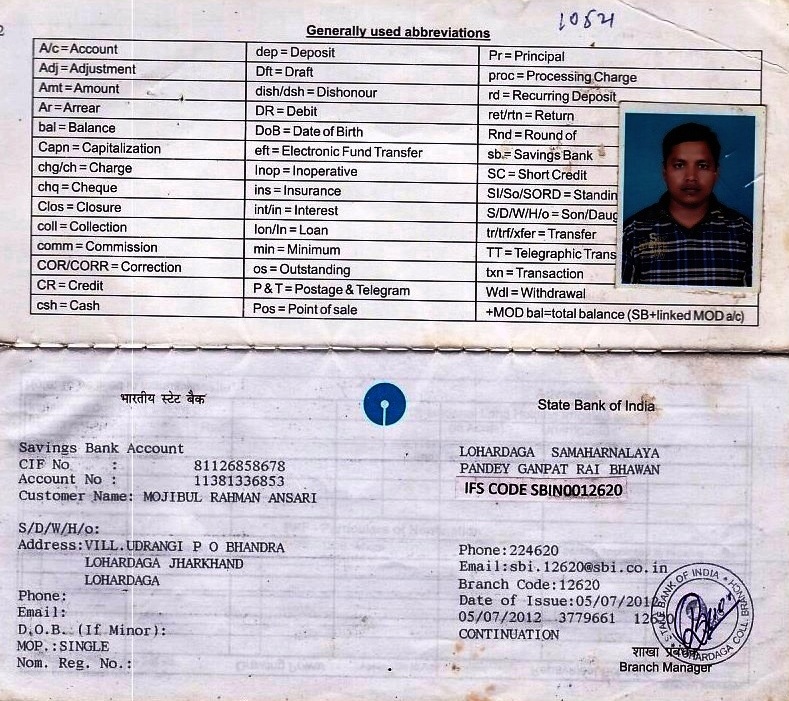 2
10521
Generally used abbreviations
A/c = Account
Adj = Adjustment
Amt = Amount
Ar = Arrear
bal = Balance
Capn = Capitalization
chg/ch = Charge
chq = Cheque
Clos = Closure
coll = Collection
comm = Commission
COR/CORR = Correction
CR = Credit
csh = Cash
dep = Deposit
Dft = Draft
dish/dsh = Dishonour
DR = Debit
DoB = Date of Birth
eft = Electronic Fund Transfer
Inop = Inoperative
ins = Insurance
int/in = Interest
lon/ln = Loan
min = Minimum
os = Outstanding
P & T = Postage & Telegram
Pos = Point of sale
Pr = Principal
proc = Processing Charge
rd = Recurring Deposit
ret/rtn = Return
Rnd = Round of
sb = Savings Bank
SC = Short Credit
SI/So/SORD = Standin
S/D/W/H/o = Son/Daug
tr/trf/xfer = Transfer
TT = Telegraphic Trans
txn = Transaction
Wdl = Withdrawal
+MOD bal=total balance (SB+linked MOD a/c)
भारतीय स्टेट बैंक
State Bank of India
Savings Bank Account
CIF No : 81126858678
Account No : 11381336853
Customer Name: MOJIBUL RAHMAN ANSARI
S/D/W/H/o:
Address:VILL.UDRANGI P O BHANDRA
LOHARDAGA JHARKHAND
LOHARDAGA
Phone:
Email:
D.O.B. (If Minor):
MOP.:SINGLE
Nom. Reg. No.:
LOHARDAGA SAMAHARNALAYA
PANDEY GANPAT RAI BHAWAN
IFS CODE SBIN0012620
Phone:224620
Email:sbi.12620@sbi.co.in
Branch Code:12620
Date of Issue:05/07/2012
05/07/2012 3779661 12620
CONTINUATION
STATE BANK OF INDIA
LOHARDAGA COLL. BRANCH
शाखा प्रबंधक
Branch Manager